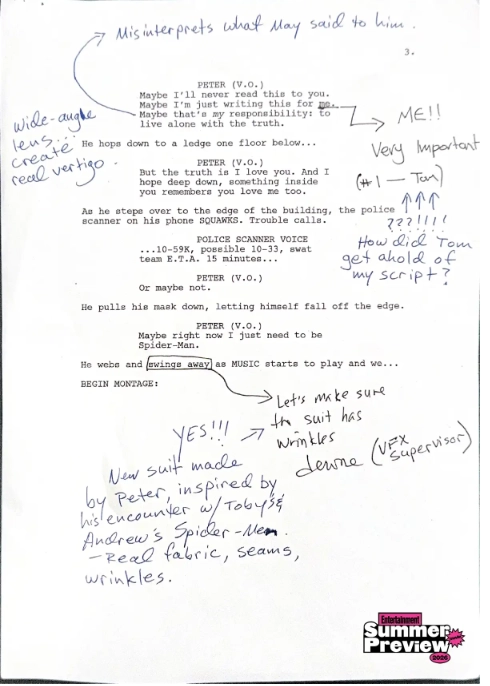 Misinterprets what May said to him.
3.
PETER (V.O.)
Maybe I'll never read this to you.
Maybe I'm just writing this for me.
Maybe that's my responsibility: to
live alone with the truth.
wide-angle
lens...
create
real vertigo.
ME!!
Very Important
(#1 — Tom)
He hops down to a ledge one floor below...
PETER (V.O.)
But the truth is I love you. And I
hope deep down, something inside
you remembers you love me too.
As he steps over to the edge of the building, the police
scanner on his phone SQUAWKS. Trouble calls.
???!!!!
How did Tom
get ahold of
my script?
POLICE SCANNER VOICE
...10-59K, possible 10-33, swat
team E.T.A. 15 minutes...
PETER (V.O.)
Or maybe not.
He pulls his mask down, letting himself fall off the edge.
PETER (V.O.)
Maybe right now I just need to be
Spider-Man.
He webs and swings away as MUSIC starts to play and we...
BEGIN MONTAGE:
Let's make sure
the suit has
wrinkles
(VFX
Supervisor)
YES!!!
New suit made
by Peter, inspired by
his encounter w/ Toby's &
Andrew's Spider-Men.
— Real fabric, seams,
wrinkles.
Entertainment
Summer
Preview
2026